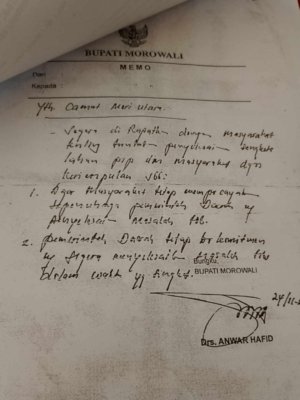 BUPATI MOROWALI
MEMO
Dari
Kepada :
Yth Camat Mori utara.
- Segera di Rapatkan dengan masyarakat
penyelesaian sengketa
lahan dan masyarakat dgn
kesimpulan sbb:
1. Agar Masyarakat tetap mempercayai
sepenuhnya pemerintah Daerah
Masalah tsb.
2. pemerintah Daerah tetap berkomitmen
segera menyelesaikan Masalah tsb
dalam waktu yg singkat.
Bungku,
BUPATI MOROWALI
24/
Drs. ANWAR HAFID